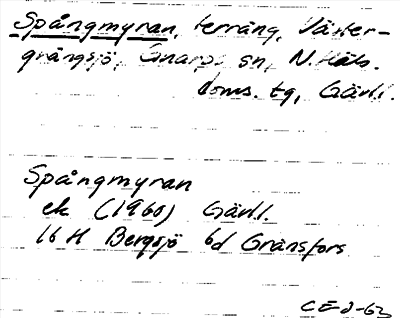 Spångmyran, terräng, Väster-
grängsjö, Gnarps sn, N. Häls.
doms. tg, Gävl.
Spångmyran
ek (1960) Gävl.
16 H Bergsjö 6d Gränsfors
CE-J-63